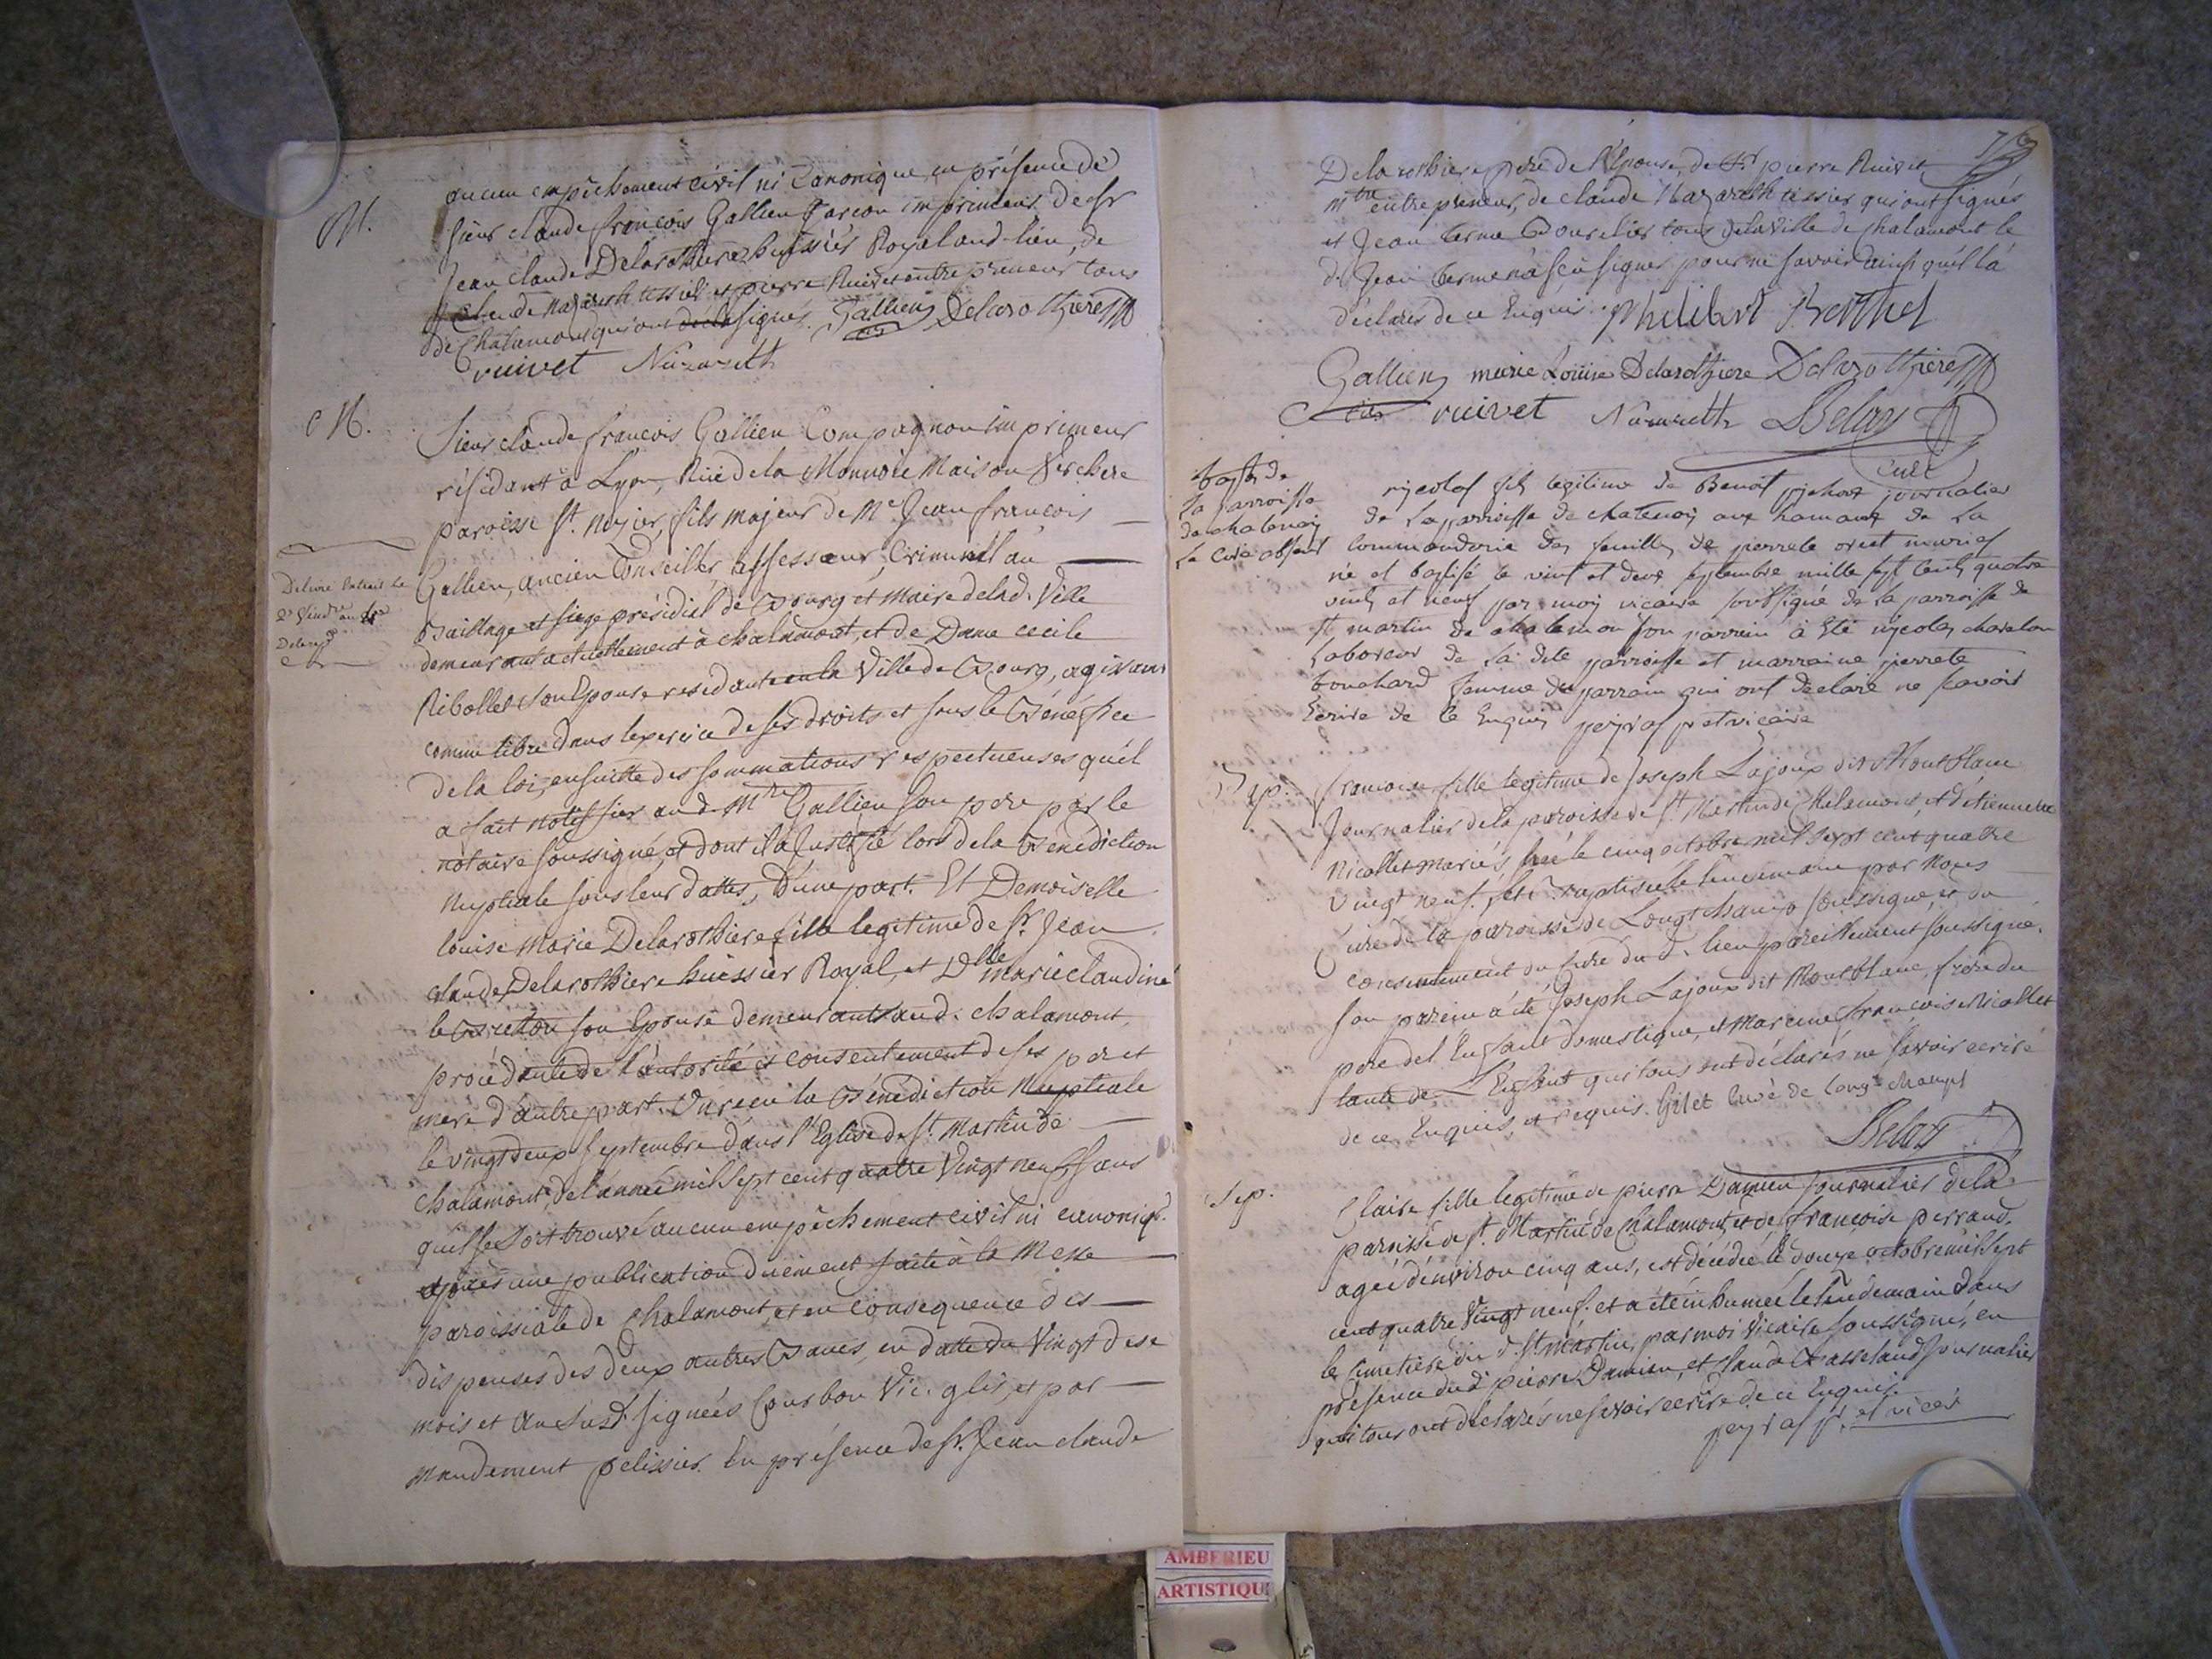 M.
aucun empêchement civil ni Canonique, en présence de
sieur claude françois Gallien garçon imprimeur, de sr
Jean Claude Delarothiere huissier Royal aud. lieu, de
Claude Nazareth tissier et pierre Ruivet entrepreneur tous
de Chalamont qui ont signés. Gallien Delarothiere
ruivet Nazareth
M.
Sieur claude françois Gallien Compagnon imprimeur
résidant à Lyon, Rue de la Monnoie Maison Verchere
paroisse st. Nizier, fils majeur de Me Jean françois
Gallien, ancien Conseiller, assesseur Criminel au
Baillage et siege présidial de Bourg et Maire de lad. Ville
demeurant actuellement à chalamont, et de Dame cecile
Ribollet son Epouse residante en la Ville de Bourg, agissant
comme libre dans lexercice de ses droits et sous le Bénéfice
de la loi, ensuitte des sommations respectueuses qu'il
a fait notiffier aud. Mtre Gallien son pere par le
notaire soussigné, et dont il a Justifié lors de la Bénédiction
Nuptiale sous leur dattes, D'une part. Et Demoiselle
louise Marie Delarothiere fille legitime de sr. Jean
claude Delarothiere huissier Royal, et Dlle marie claudine
le Breton son Epouse demeurants aud. chalamont,
procédante de l'autorité et consentement de ses pere et
mere d'autre part. Ont recu la Bénédiction Nuptiale
le vingt deux septembre dans l'Eglise de st. Martin de
chalamont, de l'année mil sept cent quatre vingt neuf sans
quil se soit trouvé aucun empêchement civil ni canoniq.
après une publication duement faite à la Messe
paroissiale de Chalamont, et en consequence des
dispenses des deux autres Bancs, en datte du Vingt dese
mois et an susd. signées Courbon Vic. gl., et par
mandement pelissier. En présence de sr. Jean claude
Delivré Extrait le
Delarothiere pere de l'Epouse, de Sr pierre Ruivet
mtre entrepreneur, de claude Nazareth tissier qui ont signés
et Jean terme Bourelier tous de la Ville de Chalamont le
d. Jean terme n'a sçu signer pour ne savoir ainsi quil l'a
déclaré de ce Enquis. Philibert Berthet
Gallien marie Louise Delarothiere Delarothiere
ruivet Nazareth Belay
Curé
bapt. de
la parroisse
de chatenay
le Curé absent
nycolas fils legitime de Benoit journalier
de la parroisse de chatenay aux hamaux de la
commanderie des feuilles, de pierrete mariés
né et baptisé le vint et deux septembre mille sept cents quatre
vints et neuf par moy vicaire soussigné de la parroisse de
st martin de chalamon son parrain à Eté nycolas
laboreur de la dite parroisse et marraine pierrete
bouchard femme du parrain qui ont déclaré ne savoir
Ecrire de ce Enquis peyras p et vicaire
Bap.
francoise fille legitime de Joseph Lajoux dit Montblanc
Journalier de la paroisse de st Martin de Chalamont, et d'etiennette
Nicollet mariés née le cinq octobre mil sept cent quatre
vingt neuf. fut Baptisée le lendemain par Nous
Curé de la paroisse de Longchamp soussigné, et du
consentement du Curé du d. lieu pareillement soussigné.
son parein a été Joseph Lajoux dit Montblanc frere du
pere del'Enfant domestique, et Mareine francoise Nicollet
tante de l'Enfant qui tous ont déclarés ne savoir ecrire
de ce Enquis, et requis. Gilet curé de long-champt
Belay
Sep.
Claire fille legitime de pierre Damien Journalier de la
paroisse de st. Martin de Chalamont, et de francoise perraud,
agée d'environ cinq ans, est decedée le douze octobre mil sept
cent quatre Vingt neuf. et a été inhumée le lendemain dans
le Cimetiere du d. st. Martin, par moi Vicaire soussigné, en
présence dud. pierre Damien, et Claude Chasseland Journalier
qui tous ont déclarés ne savoir ecrire de ce Enquis.
peyras p. et vicere
AMBERIEU
ARTISTIQU